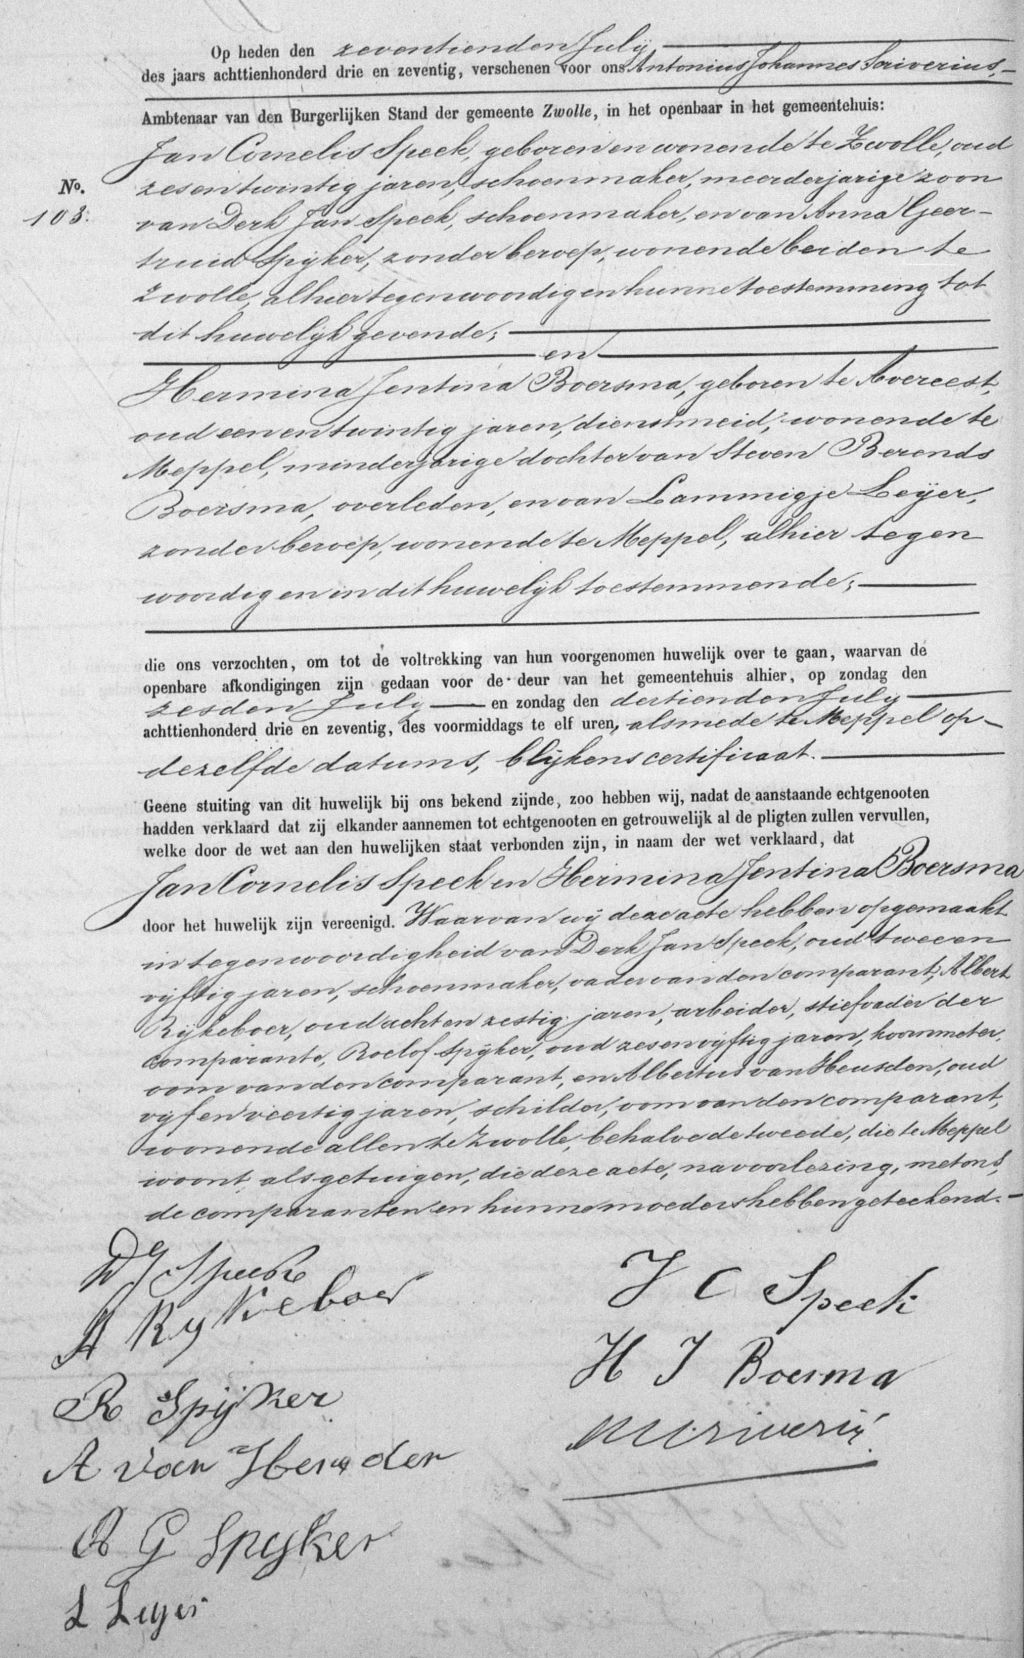 Op heden den zeventienden July
des jaars achttienhonderd drie en zeventig, verschenen voor ons Antonius Johannes Scriverius,
Ambtenaar van den Burgerlijken Stand der gemeente Zwolle, in het openbaar in het gemeentehuis:
Jan Cornelis Speek, geboren en wonende te Zwolle, oud
No. zesentwintig jaren, schoenmaker, meerderjarige zoon
103. van Derk Jan Speek, schoenmaker, en van Anna Geer-
truid Spijker, zonder beroep, wonende beiden te
Zwolle, alhier tegenwoordig en hunne toestemming tot
dit huwelijk gevende;
en
Hermina Jentina Boersma, geboren te Avereest,
oud eenentwintig jaren, dienstmeid, wonende te
Meppel, minderjarige dochter van Steven Berends
Boersma, overleden, en van Lammigje Leijer,
zonder beroep, wonende te Meppel, alhier tegen
woordig en in dit huwelijk toestemmende;
die ons verzochten, om tot de voltrekking van hun voorgenomen huwelijk over te gaan, waarvan de
openbare afkondigingen zijn gedaan voor de deur van het gemeentehuis alhier, op zondag den
zesden July en zondag den dertienden July
achttienhonderd drie en zeventig, des voormiddags te elf uren, alsmede te Meppel op
dezelfde datums, blijkens certificaat.
Geene stuiting van dit huwelijk bij ons bekend zijnde, zoo hebben wij, nadat de aanstaande echtgenooten
hadden verklaard dat zij elkander aannemen tot echtgenooten en getrouwelijk al de pligten zullen vervullen,
welke door de wet aan den huwelijken staat verbonden zijn, in naam der wet verklaard, dat
Jan Cornelis Speek en Hermina Jentina Boersma
door het huwelijk zijn vereenigd. Waarvan wij deze acte hebben opgemaakt
in tegenwoordigheid van Derk Jan Speek, oud tweeen
vijftig jaren, schoenmaker, vader van den comparant, Albert
Rijkeboer, oud achtenzestig jaren, arbeider, stiefvader der
comparante, Roelof Spijker, oud zesenvijftig jaren, koornmeter,
oom van den comparant, en Albertus van Heusden, oud
vijfenveertig jaren, schilder, oom van den comparant,
wonende allen te Zwolle, behalve de tweede, die te Meppel
woont, als getuigen, die deze acte, na voorlezing, met ons,
de comparanten en hunne moeders hebben geteekend.
D J Speek
J C Speek
A Rykeboer
H J Boersma
R Spijker
A van Heusden
A G Spyker
L Leyer